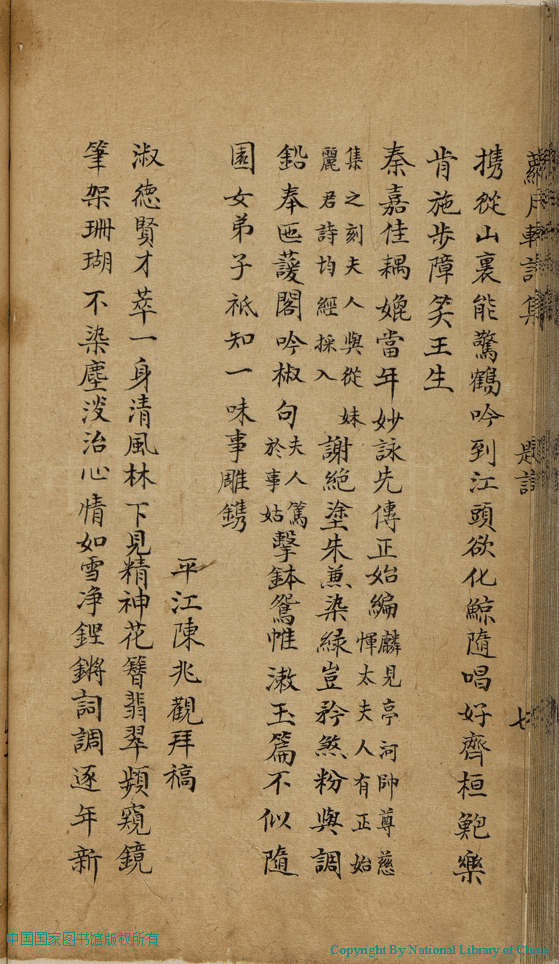 月軒詩集
題詩
七
携從山裏能驚鶴吟到江頭欲化鯨隨唱好齊桓鮑樂
肯施步障笑王生
秦嘉佳耦媲當年妙詠先傳正始編麟見亭河帥尊慈
惲太夫人有正始
集之刻夫人與從妹
麗君詩均經採入
謝絶塗朱蕙染緑豈矜煞粉與調
鉛奉匜護閣吟椒句夫人篤
於事姑
擊鉢鴛帷漱玉篇不似隨
園女弟子祗知一味事雕鎸
平江陳兆觀拜稿
淑德賢才萃一身清風林下見精神花簪翡翠頻窺鏡
筆架珊瑚不染塵淡治心情如雪净鏗鏘詞調逐年新
中国国家图书馆版权所有
Copyright By National Library of China